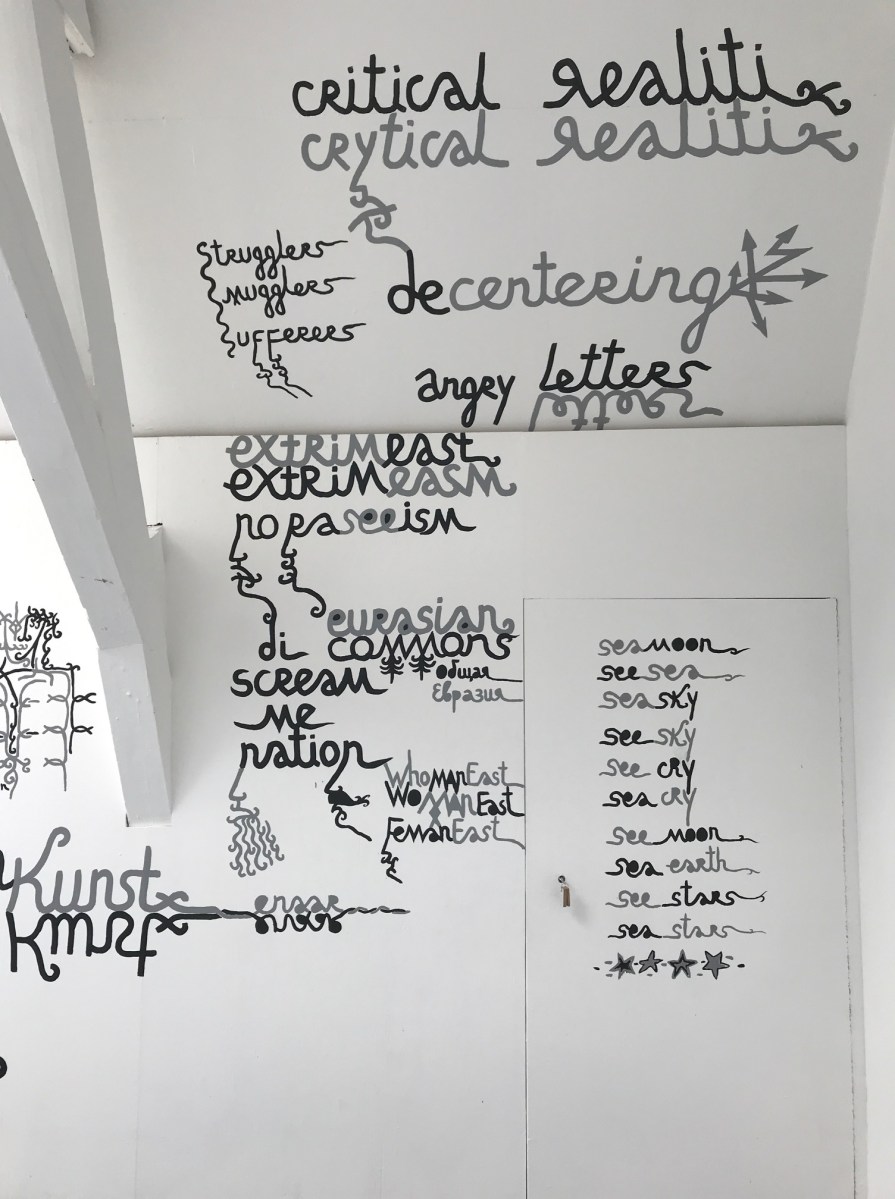 critical realiti
crytical realiti
strugglers
mugglers
sufferers
decentering
angry letters
extrimeast
extrimeasm
no paseeism
eurasian
di commons
общая
scream
Евразия
me
nation
WhomanEast
WomanEast
FemanEast
Kunst
seamoon
see sea
seasky
see sky
see cry
sea cry
see moon
sea earth
see stars
sea stars